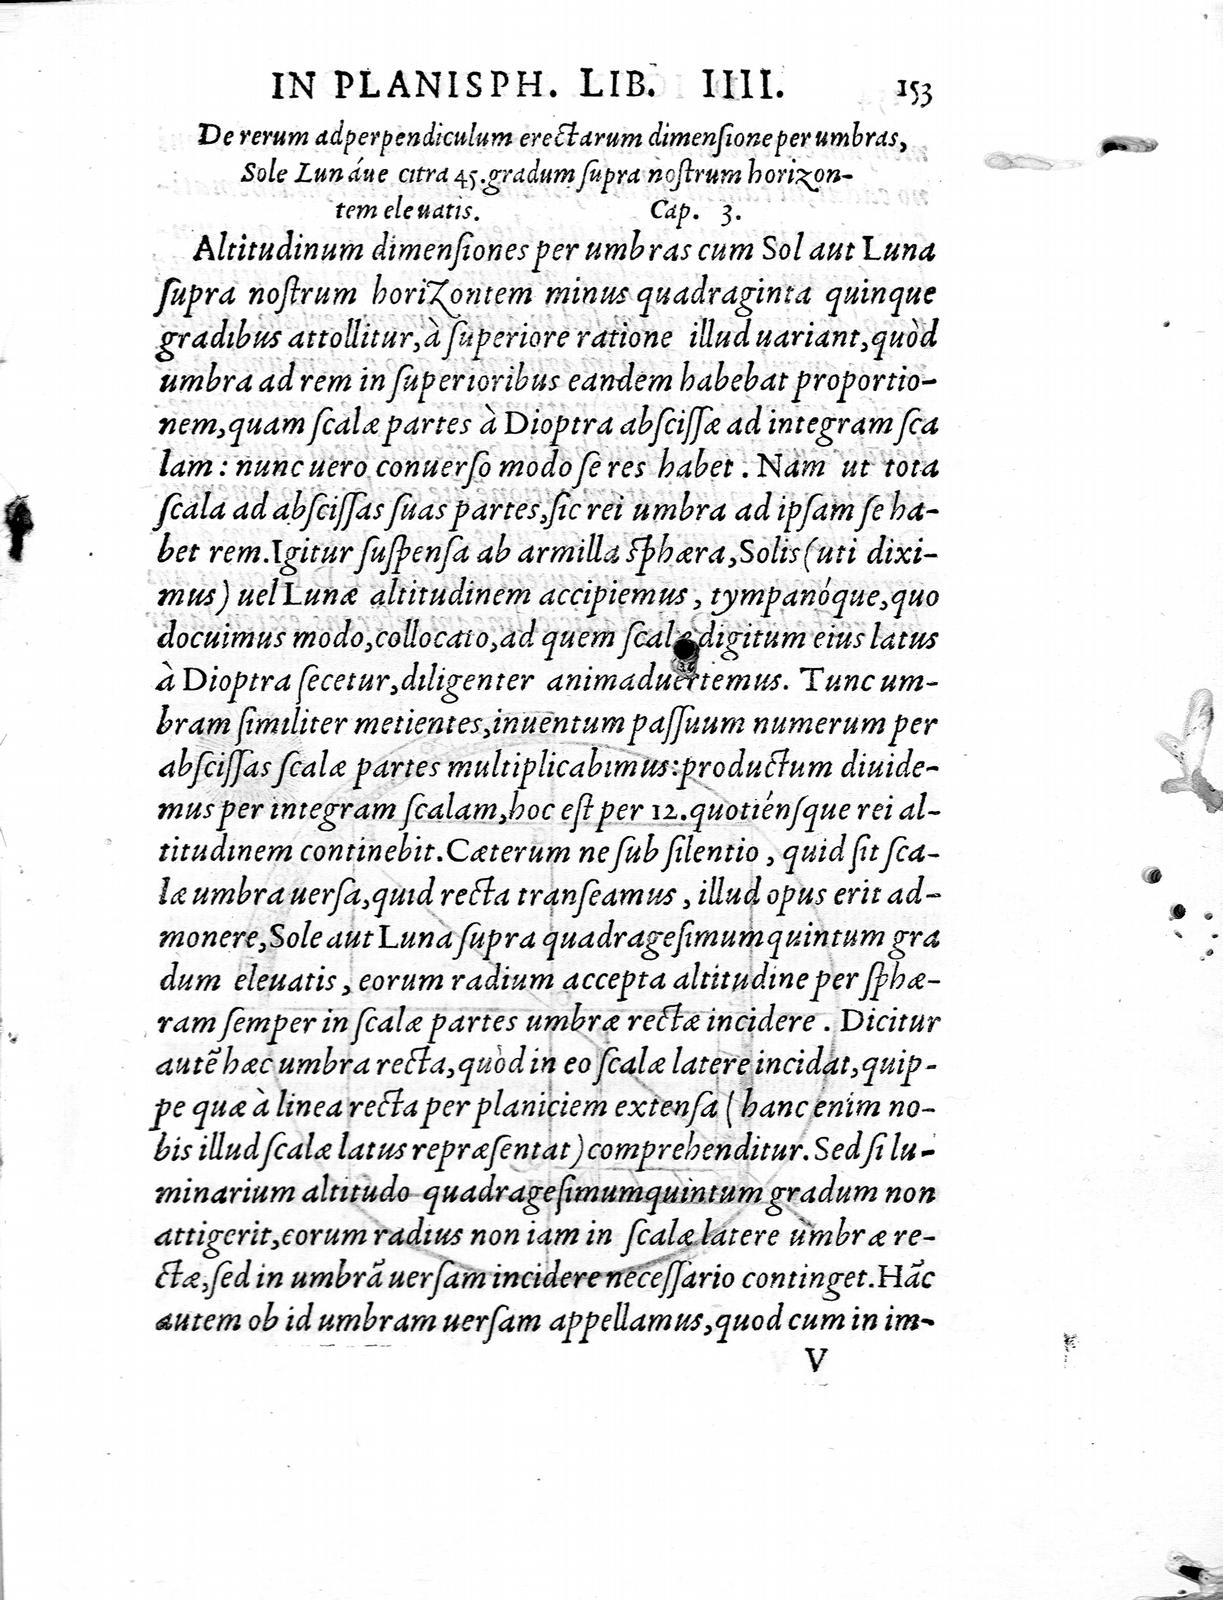 IN PLANISPH. LIB. IIII. 153
De rerum ad perpendiculum erectarum dimensione per umbras,
Sole Lunáue citra 45. gradum supra nostrum horizon-
tem eleuatis. Cap. 3.
Altitudinum dimensiones per umbras cum Sol aut Luna
supra nostrum horizontem minus quadraginta quinque
gradibus attollitur, à superiore ratione illud uariant, quòd
umbra ad rem in superioribus eandem habebat proportio-
nem, quam scalæ partes à Dioptra abscissæ ad integram sca
lam: nunc uero conuerso modo se res habet. Nam ut tota
scala ad abscissas suas partes, sic rei umbra ad ipsam se ha-
bet rem. Igitur suspensa ab armilla sphæra, Solis (uti dixi-
mus) uel Lunæ altitudinem accipiemus, tympanóque, quo
docuimus modo, collocato, ad quem scalæ digitum eius latus
à Dioptra secetur, diligenter animaduertemus. Tunc um-
bram similiter metientes, inuentum passuum numerum per
abscissas scalæ partes multiplicabimus: productum diuide-
mus per integram scalam, hoc est per 12. quotiénsque rei al-
titudinem continebit. Cæterum ne sub silentio, quid sit sca-
læ umbra uersa, quid recta transeamus, illud opus erit ad-
monere, Sole aut Luna supra quadragesimumquintum gra
dum eleuatis, eorum radium accepta altitudine per sphæ-
ram semper in scalæ partes umbræ rectæ incidere. Dicitur
autẽ hæc umbra recta, quòd in eo scalæ latere incidat, quip-
pe quæ à linea recta per planiciem extensa (hanc enim no-
bis illud scalæ latus repræsentat) comprehenditur. Sed si lu-
minarium altitudo quadragesimumquintum gradum non
attigerit, eorum radius non iam in scalæ latere umbræ re-
ctæ, sed in umbrã uersam incidere necessario continget. Hãc
autem ob id umbram uersam appellamus, quod cum in im-
V